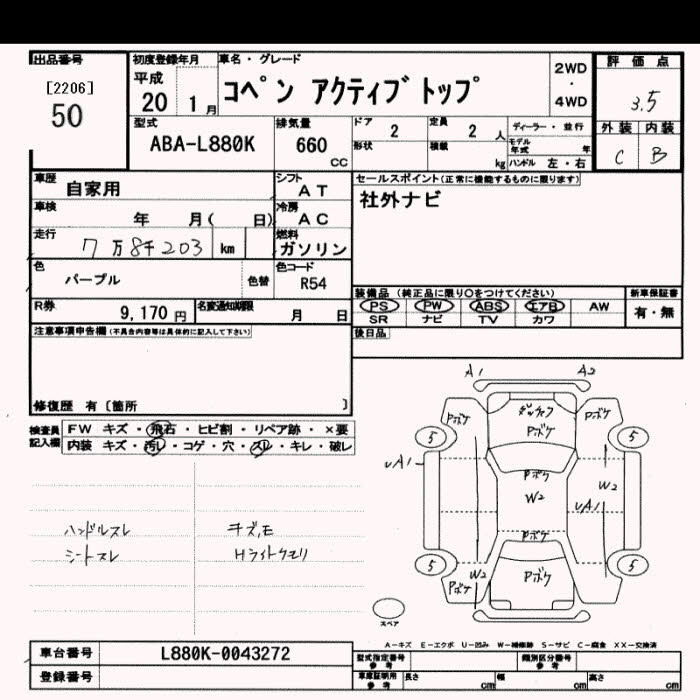 出品番号
[2206]
50
初度登録年月
平成
20 1月
車名・グレード
コペン アクティブトップ
2WD
・
4WD
評価点
3.5
外装 内装
C B
型式
ABA-L880K
排気量
660
CC
ドア
2
定員
2 人
形状
積載
kg
ディーラー・並行
モデル年式 年
ハンドル 左・右
車歴
自家用
シフト
AT
セールスポイント(正常に機能するものに限ります)
社外ナビ
車検
年 月( 日)
冷房
AC
走行
7万8千203 km
燃料
ガソリン
色
パープル
色替
色コード
R54
R券
9,170円
名変通知期限
月 日
装備品(純正品に限り○をつけてください)
PS PW ABS エアB AW
SR ナビ TV カワ
新車保証書
有・無
後日品
注意事項申告欄(不具合内容等は具体的に記入して下さい)
修復歴 有〔箇所 〕
検査員記入欄
FW キズ・飛石・ヒビ割・リペア跡・×要
内装 キズ・汚レ・コゲ・穴・スレ・キレ・破レ
ハンドルスレ
シートスレ
キズ,モ
Hライトクモリ
A1 A2
Pボケ Pボケ Pボケ
5 5
Pボケ
W2
A1 W2 A1
Pボケ
5 5
W2
Pボケ Pボケ
スペア
A-キズ E-エクボ U-凹み W-補修跡 S-サビ C-腐食 XX-交換済
車台番号
L880K-0043272
登録番号
型式指定番号
参考
類別区分番号
参考
車庫証明用
参考
長さ cm
幅 cm
高さ cm